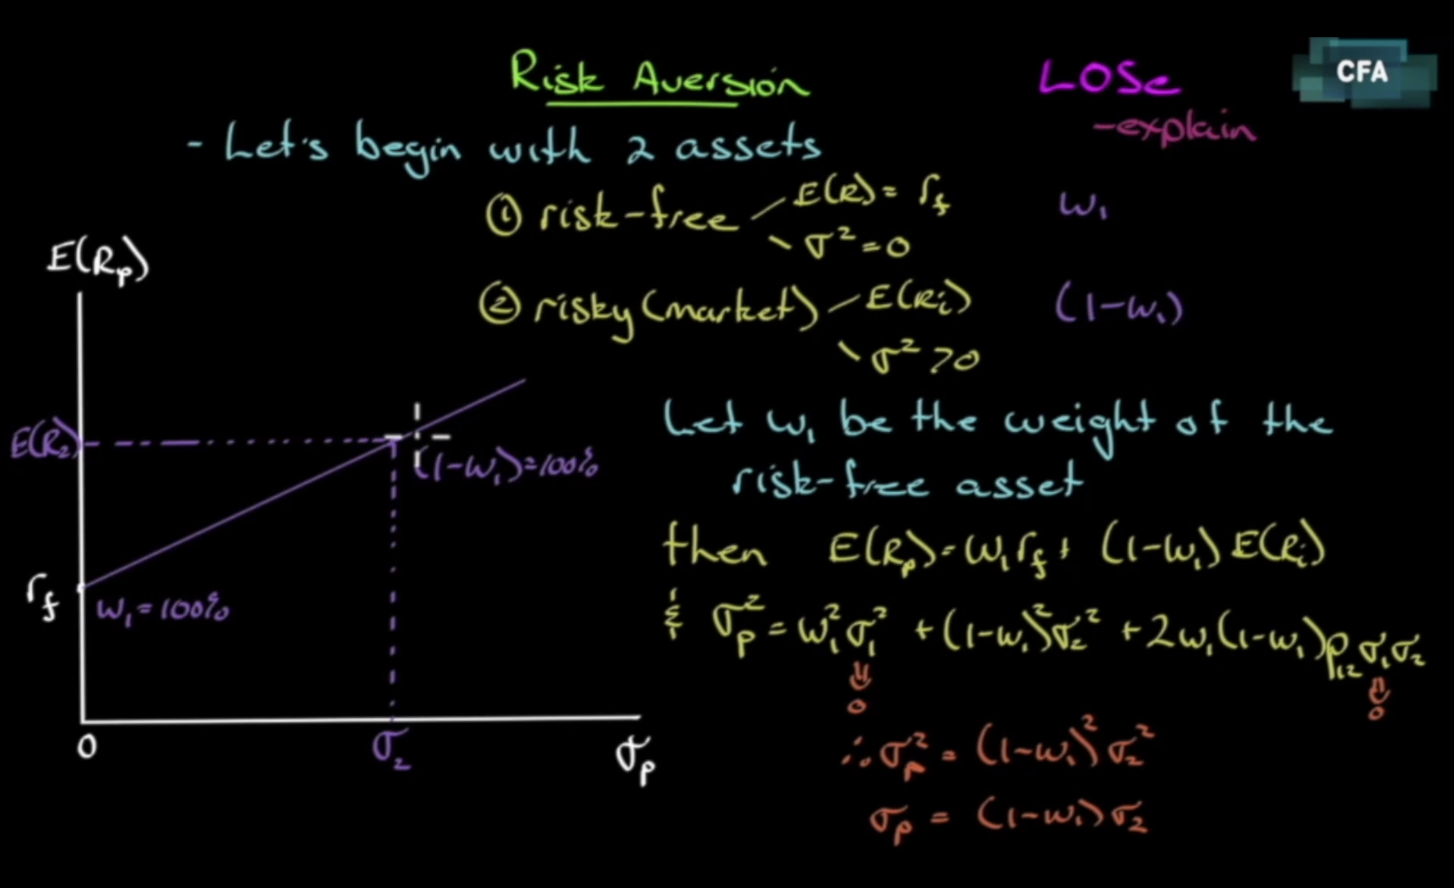 Risk Aversion
LOSe
-explain
CFA
- Let's begin with 2 assets
① risk-free
E(R) = rf
σ² = 0
w₁
② risky (market)
E(Ri)
σ² > 0
(1-w₁)
E(Rp)
E(R₂)
(1-w₁)=100%
rf
w₁ = 100%
0
σ₂
σp
Let w₁ be the weight of the
risk-free asset
then E(Rp) = w₁rf + (1-w₁)E(Ri)
& σp² = w₁²σ₁² + (1-w₁)²σ₂² + 2w₁(1-w₁)ρ₁₂σ₁σ₂
⇓ ⇓
0 0
∴ σp² = (1-w₁)²σ₂²
σp = (1-w₁)σ₂